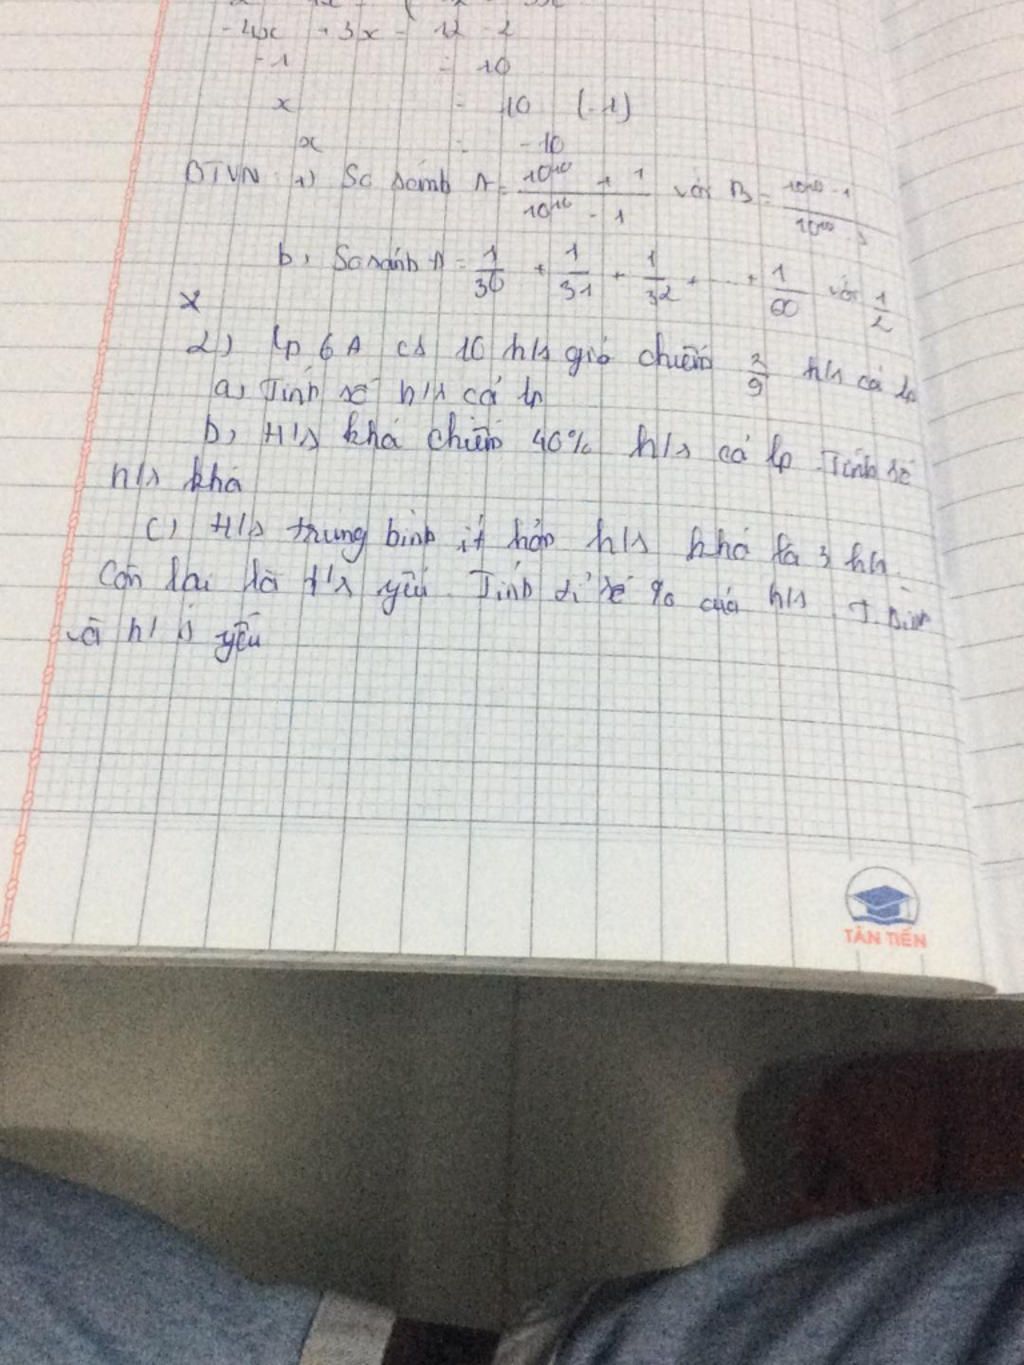 - 4x + 3x = 12 - 2
-1 = 10
x = 10 (-1)
x = -10
BTVN 1) So sánh A = \frac{10^{10} + 1}{10^{10} - 1} với B = \frac{10^{10} - 1}{10^{10} - 3}
b, So sánh A = \frac{1}{30} + \frac{1}{31} + \frac{1}{32} + ... + \frac{1}{60} với \frac{1}{2}
x
2) Lp 6A có 10 h/s giỏi chiếm \frac{2}{9} h/s cả lp
a, Tính số h/s cả lp
b, H/s khá chiếm 40% h/s cả lp. Tính số
h/s khá
c) H/s trung bình ít hơn h/s khá là 3 h/s
Còn lại là h/s yếu. Tính tỉ số % của h/s T. Bình
và h/s yếu
TÂN TIẾN